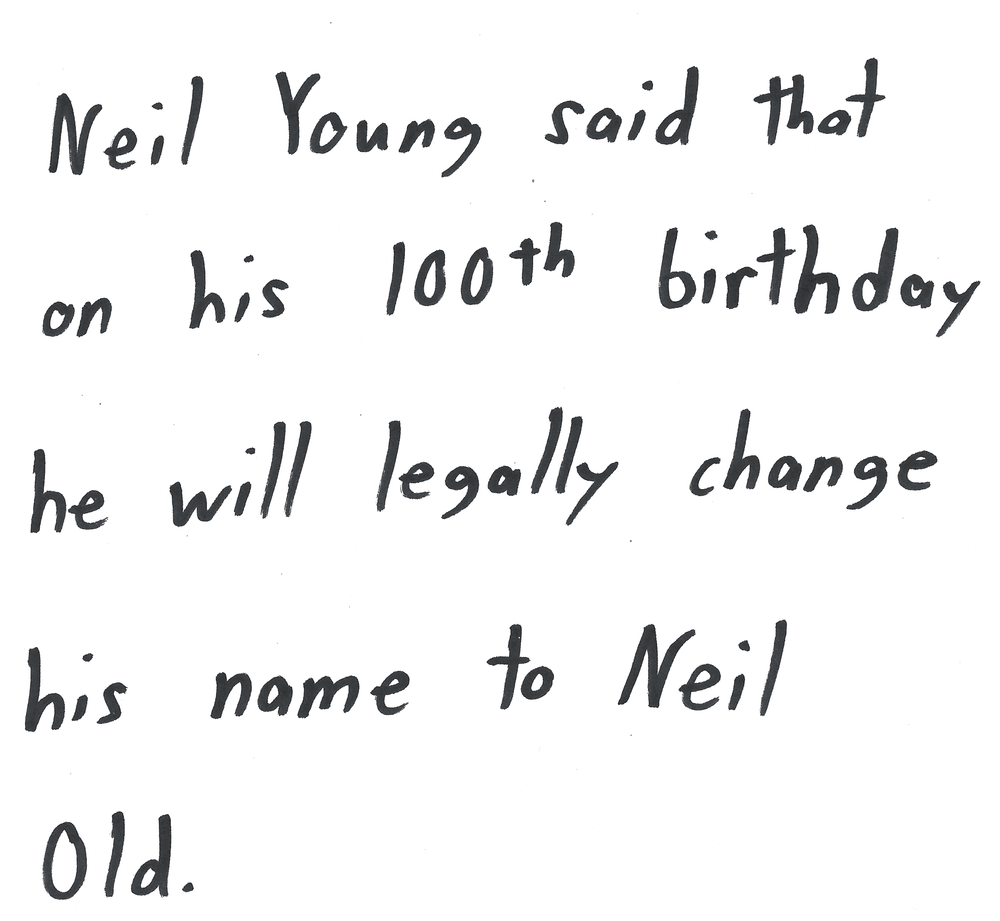 Neil Young said that
on his 100th birthday
he will legally change
his name to Neil
Old.